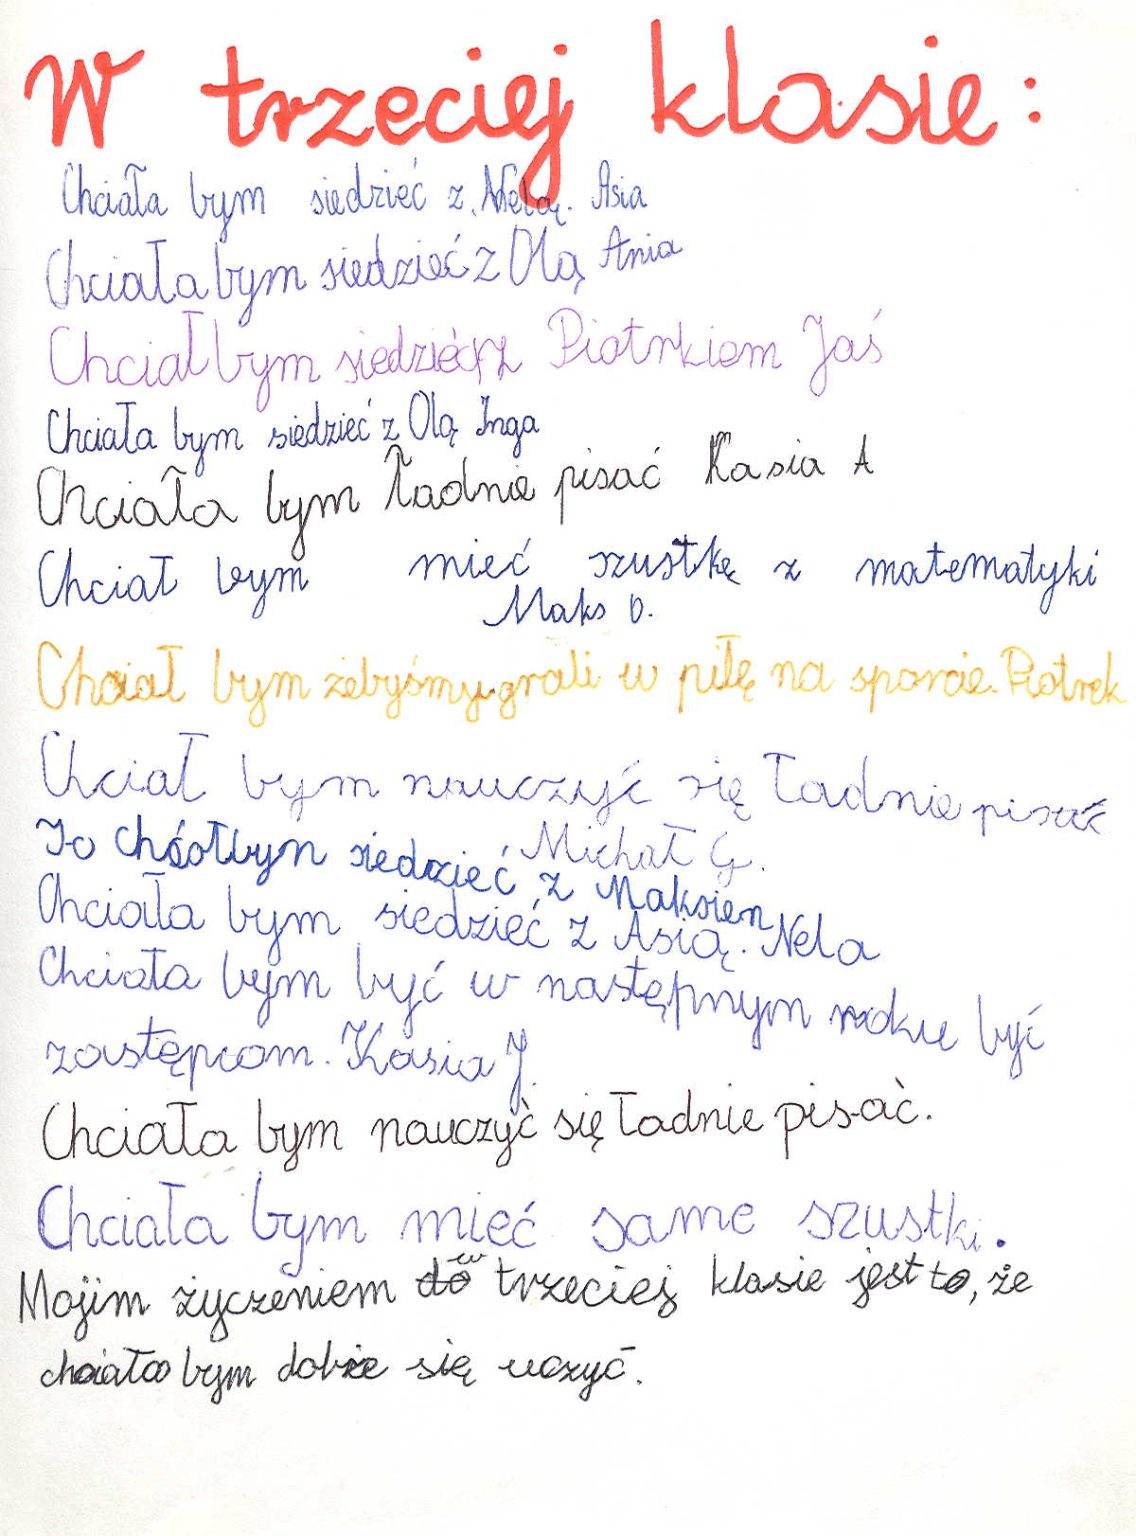 W trzeciej klasie:
Chciała bym siedzieć z Nelą. Asia
Chciała bym siedzieć z Olą Ania
Chciał bym siedzieć z Piotrkiem Jaś
Chciała bym siedzieć z Olą Inga
Chciała bym ładnie pisać Kasia A
Chciał bym mieć szustkę z matematyki
Maks D.
Chciał bym żebyśmy grali w piłę na sporcie. Piotrek
Chciał bym nauczyć się ładnie pisać
Michał G.
Jo siedzieć z Maksiem
Chciała bym siedzieć z Asią. Nela
Chciała bym być w następnym roku być
zastępcom. Kasia J.
Chciała bym nauczyć się ładnie pis-ać.
Chciała bym mieć same szustki.
Mojim życzeniem w trzeciej klasie jest to, że
chciała bym dobże się uczyć.